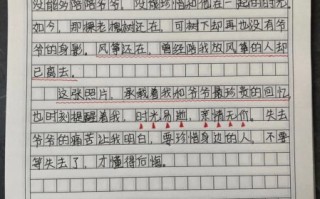 没能多陪陪爷爷，没珍惜和他在一起的时光。
如今，那棵老槐树还在，可树下却再也没有爷
爷的身影。风筝还在，曾经陪我放风筝的人却
已离去。
这张照片，承载着我和爷爷最珍贵的回忆，
也时刻提醒着我，时光易逝，亲情无价。失去
爷爷的痛苦让我明白，要珍惜身边的人，不要
等失去了，才懂得后悔。